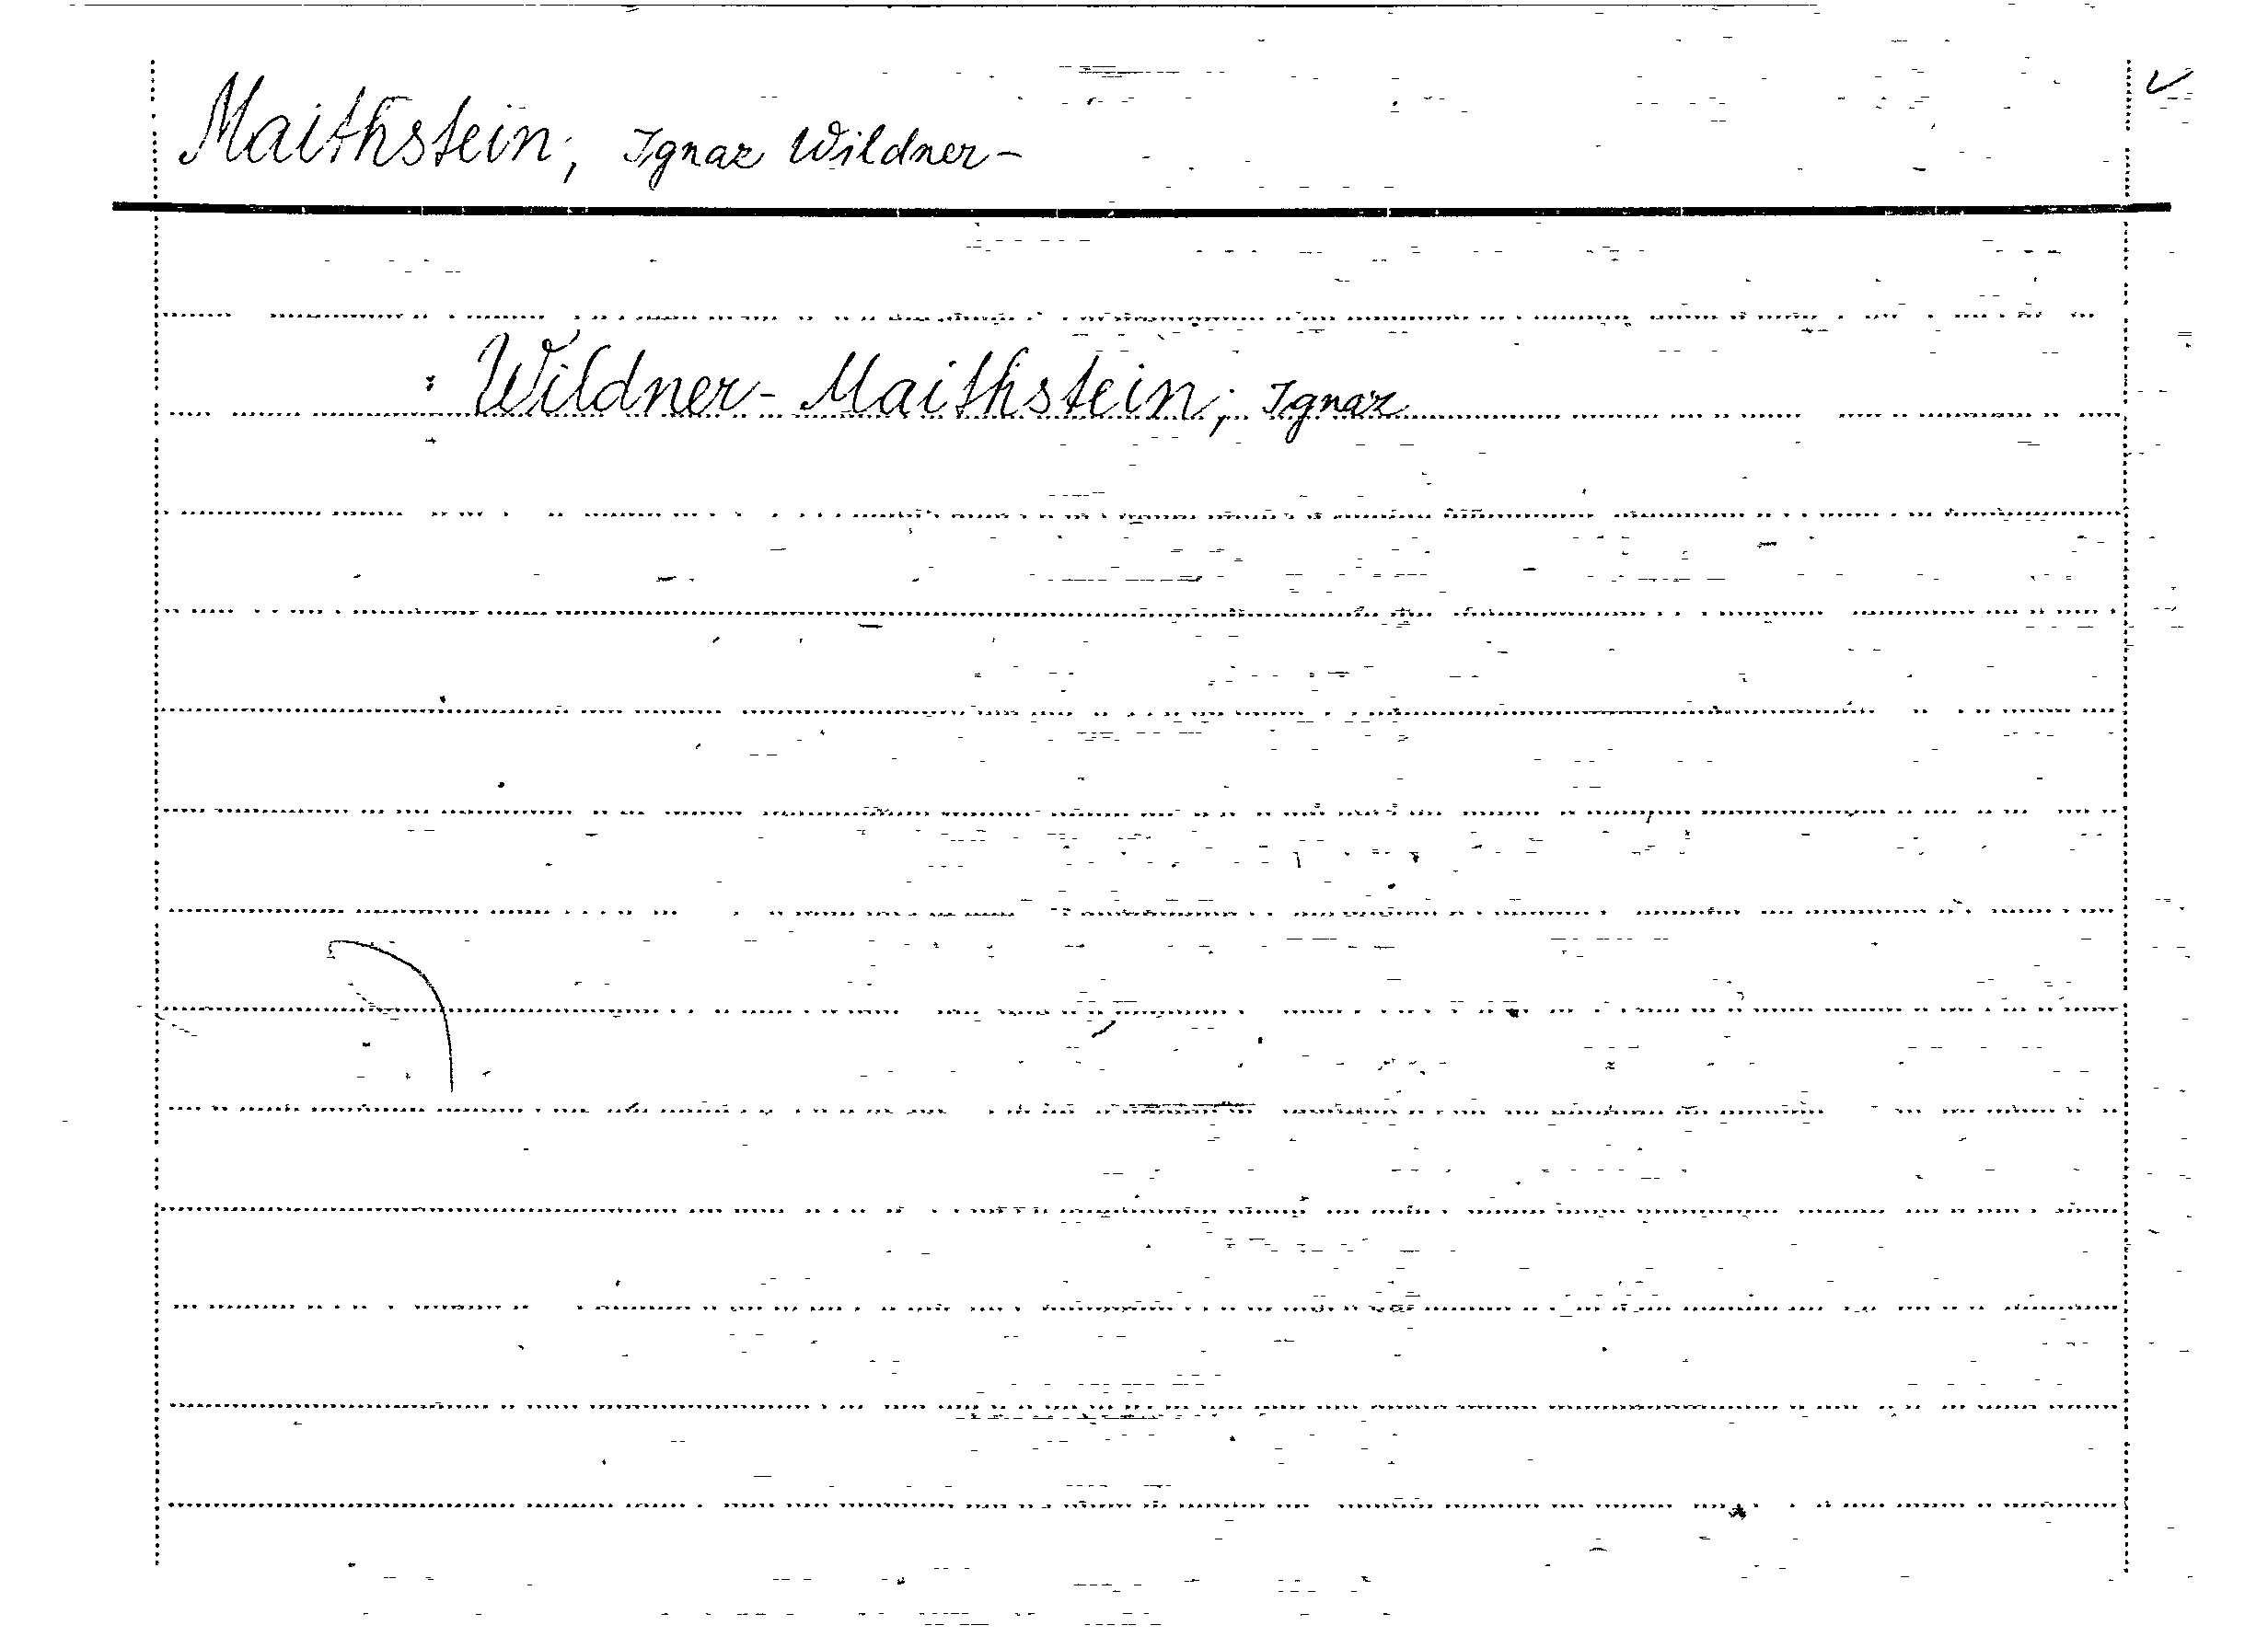 Maithstein, Ignaz Wildner-
: Wildner-Maithstein, Ignaz